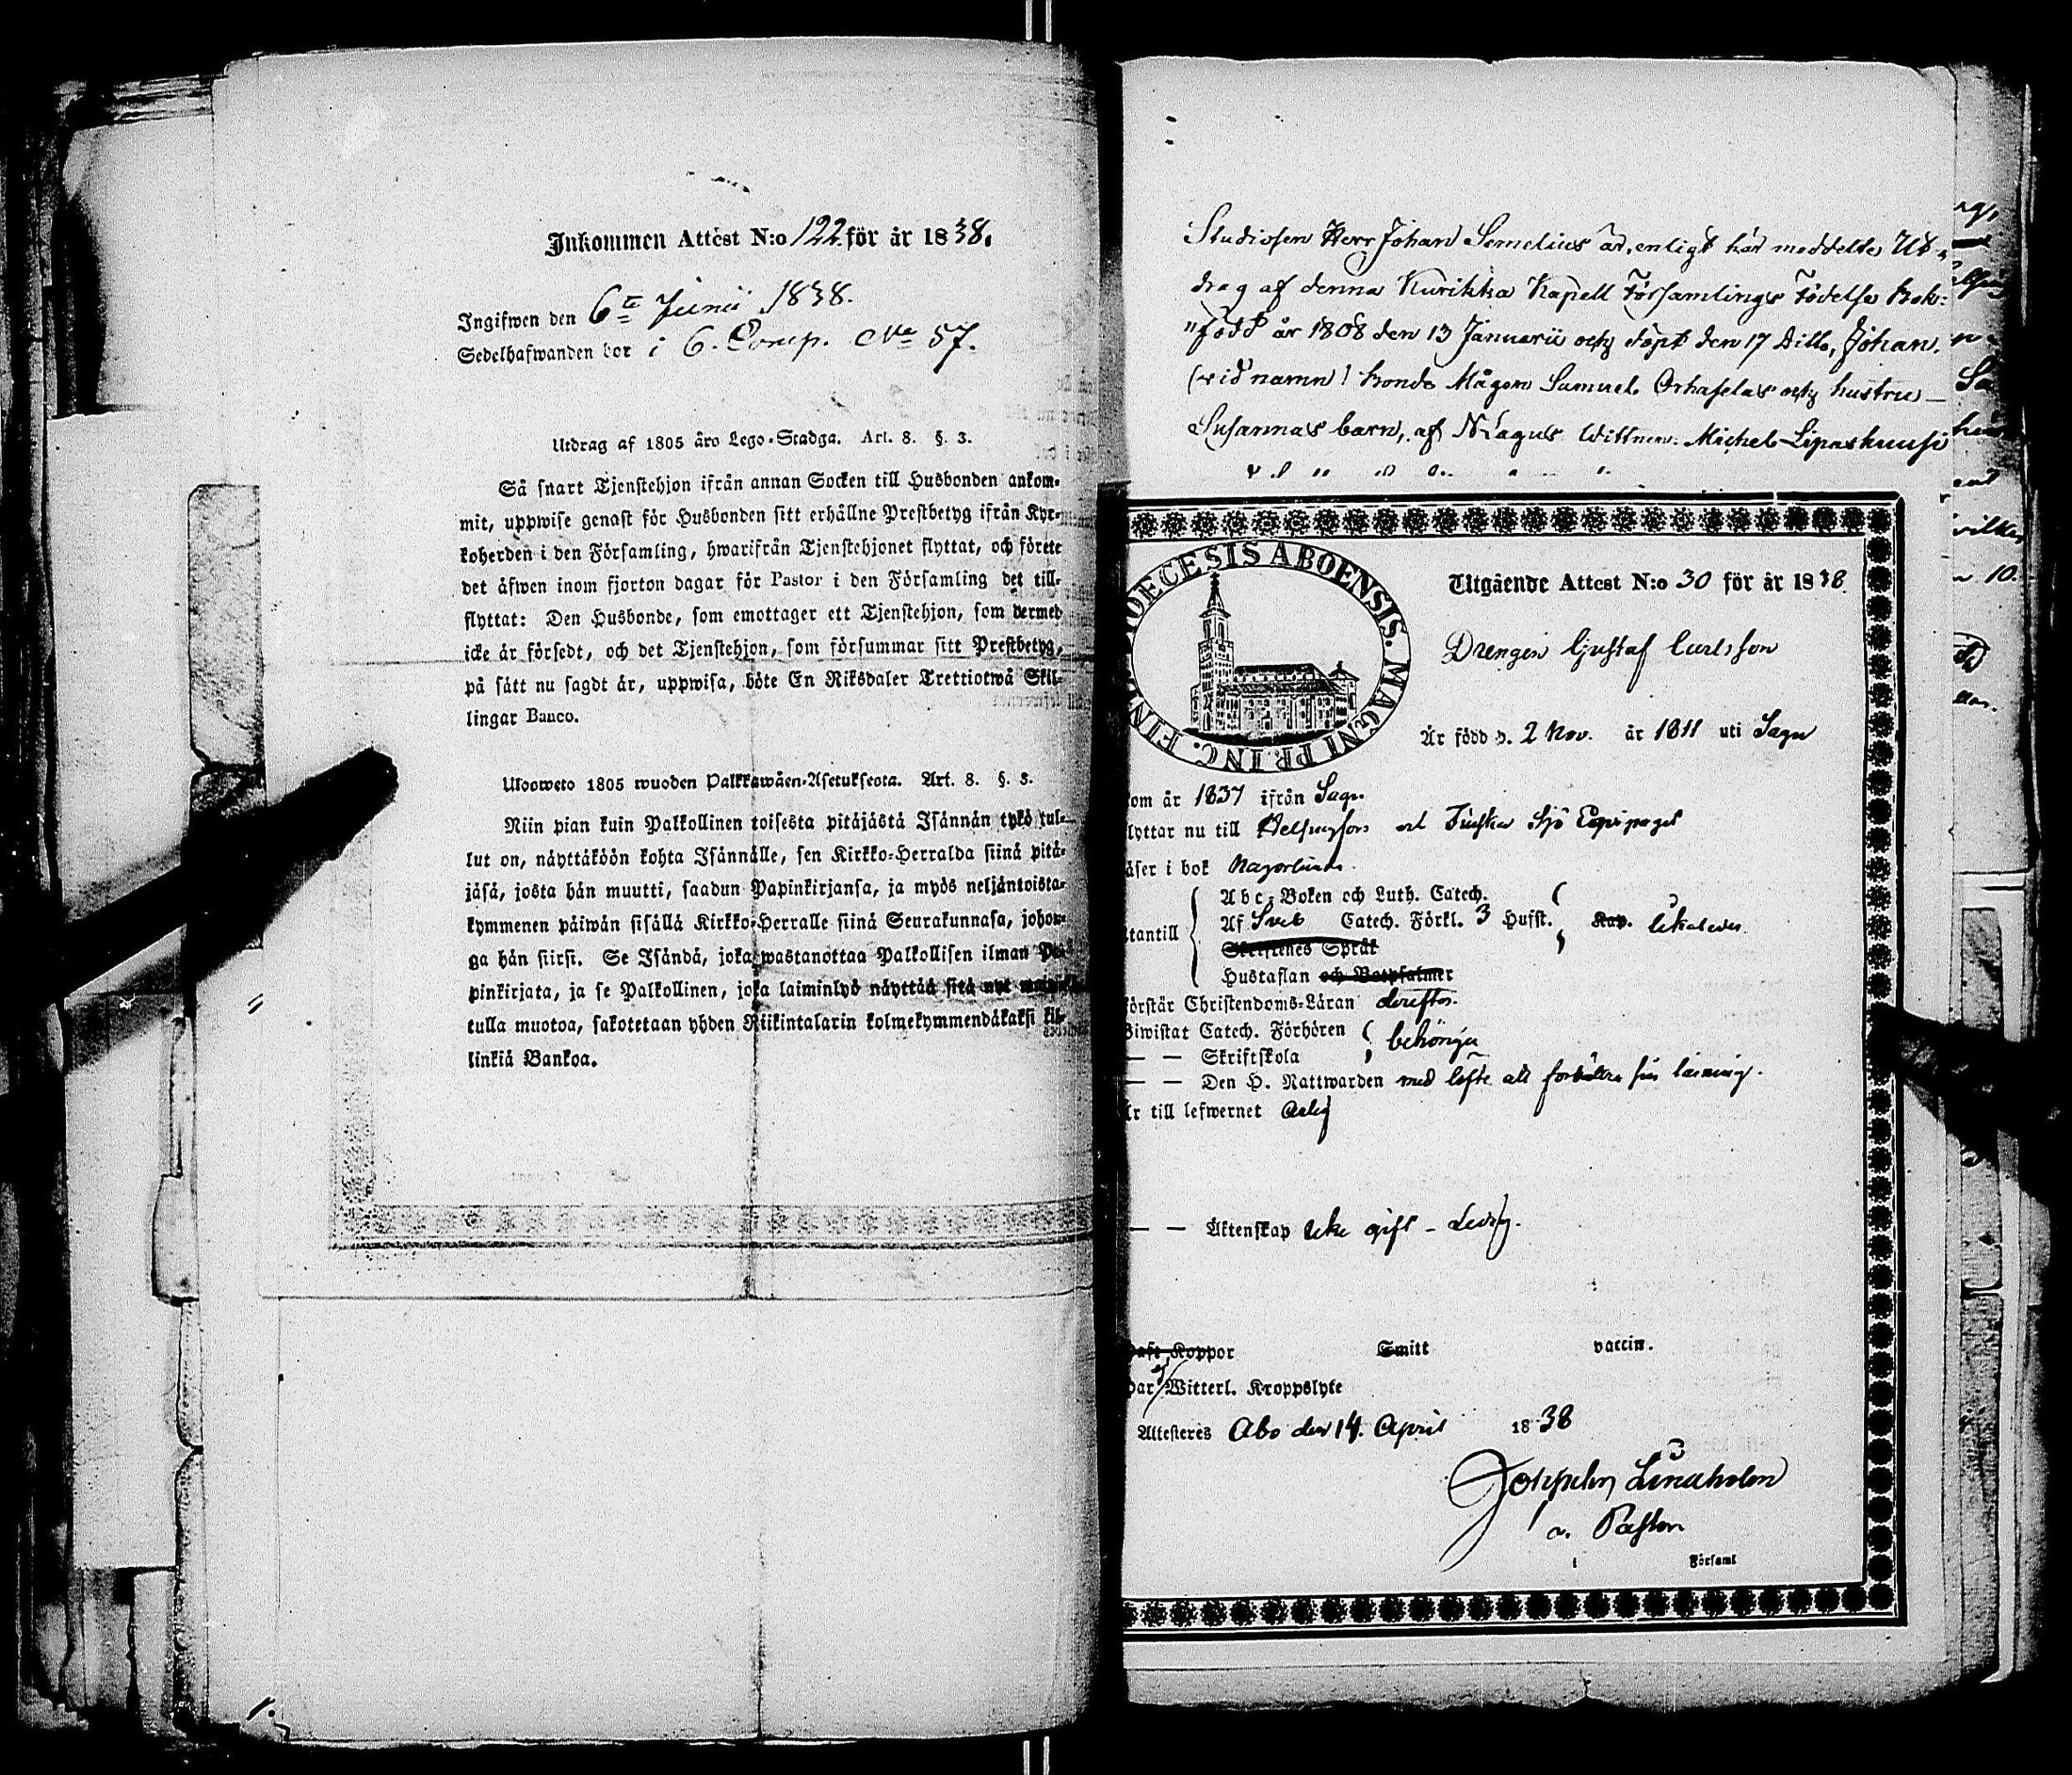 Inkommen Attest N:o 122 för år 1838.
Ingifwen den 6te Junii 1838.
Sedelhafwanden bor i 6. Comp. No 57.
Utdrag af 1805 åro Lego-Stadga. Art. 8. §. 3.
Så snart Tjenstehjon ifrån annan Socken till Husbonden ankom-
mit, uppwise genast för Husbonden sitt erhållne Prestbetyg ifrån Kyr-
koherden i den Församling, hwarifrån Tjenstehjonet flyttat, och förete
det äfwen inom fjorton dagar för Pastor i den Församling det till-
flyttat: Den Husbonde, som emottager ett Tjenstehjon, som dermed
icke är försedt, och det Tjenstehjon, som försummar sitt Prestbetyg,
på sätt nu sagdt är, uppwisa, böte En Riksdaler Trettiotwå Skil-
lingar Banco.
Ulooweto 1805 wuoden Palkkawäen-Asetuksesta. Art. 8. §. 3.
Niin pian kuin Palkollinen toisesta pitäjästä Isännän tykö tul-
lut on, näyttäköön kohta Isännälle, sen Kirkko-Herralda siinä pitä-
jäsä, josta hän muutti, saadun Papinkirjansa, ja myös neljäntoista-
kymmenen päiwän sisällä Kirkko-Herralle siinä Seurakunnasa, johon-
ga hän siirsi. Se Isändä, joka wastanottaa Palkollisen ilman Pa-
pinkirjata, ja se Palkollinen, joka laiminlyö näyttää sitä nyt
tulla muotoa, sakotetaan yhden Riikintalarin kolmekymmendäkaksi kil-
linkiä Bankoa.
Studiosen Herr Johan Semelius är, enligt här meddelte Ut-
drag af denna Kurikka Kapell Församlings Födelse Bok:
"född år 1808 den 13 Januarii och döpt den 17 Ditto, Johan
(vid namn) bonde Mågen Samuel Orhaselas och hustru
Susannas barn, af Wittnen. Michel Lipashuusi
DIOECESIS ABOENSIS. MAGNI PRINC. FINL
Utgående Attest N:o 30 för år 1838.
Drengen Gustaf Carlsson
Är född d. 2 Nov. år 1811 uti Sagu
om år 1837 ifrån Sagu
lyttar nu till Helsingfors och Finska Sjö Equipaget
äser i bok någorlunda.
Abc-Boken och Luth. Catech.
tantill Af Sveb Catech. Förkl. 3 Hufst.
Skriftenes Språk
Hustaflan och Botpsalmer
örstår Christendoms-Läran derefter.
Biwistat Catech. Förhören behörigen
— — Skriftskola
— — Den H. Nattwarden med löfte att förbättra sin läsning.
är till lefwernet ärlig
— — Äktenskap icke gift - ledig.
haft Koppor Smitt vaccin.
har ej Witterl. Kroppslyte
Attesteres Åbo den 14. April 1838
Lindholm
v. Pastor
i Församl